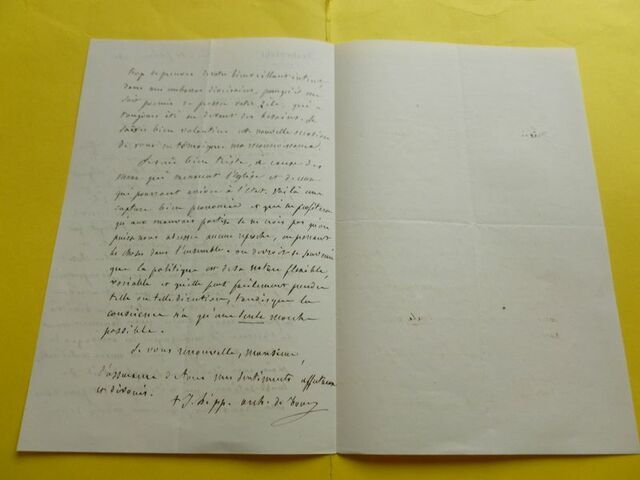 trop de preuves de votre bienveillant intérêt
dans nos embarras diocésains, pour qu'il me
soit permis de presser votre zèle, qui a
toujours été au devant des besoins. Je
saisis bien volontiers cette nouvelle occasion
de vous en témoigner ma reconnaissance.
Je suis bien triste, à cause des
maux qui menacent l'église et de ceux
qui pourront arriver à l'état. Voilà une
rupture bien prononcée et qui ne profitera
qu'aux mauvais partis. Je ne crois pas qu'on
puisse nous adresser aucun reproche, en prenant
les choses dans l'ensemble. on devrait se souvenir
que la politique est de sa nature flexible,
variable et qu'elle peut facilement prendre
telle ou telle direction, tandis que la
conscience n'a qu'une seule marche
possible.
Je vous renouvelle, monsieur,
l'assurance de tous mes sentiments affectueux
et dévoués.
+ J. hipp. arch. de Tours